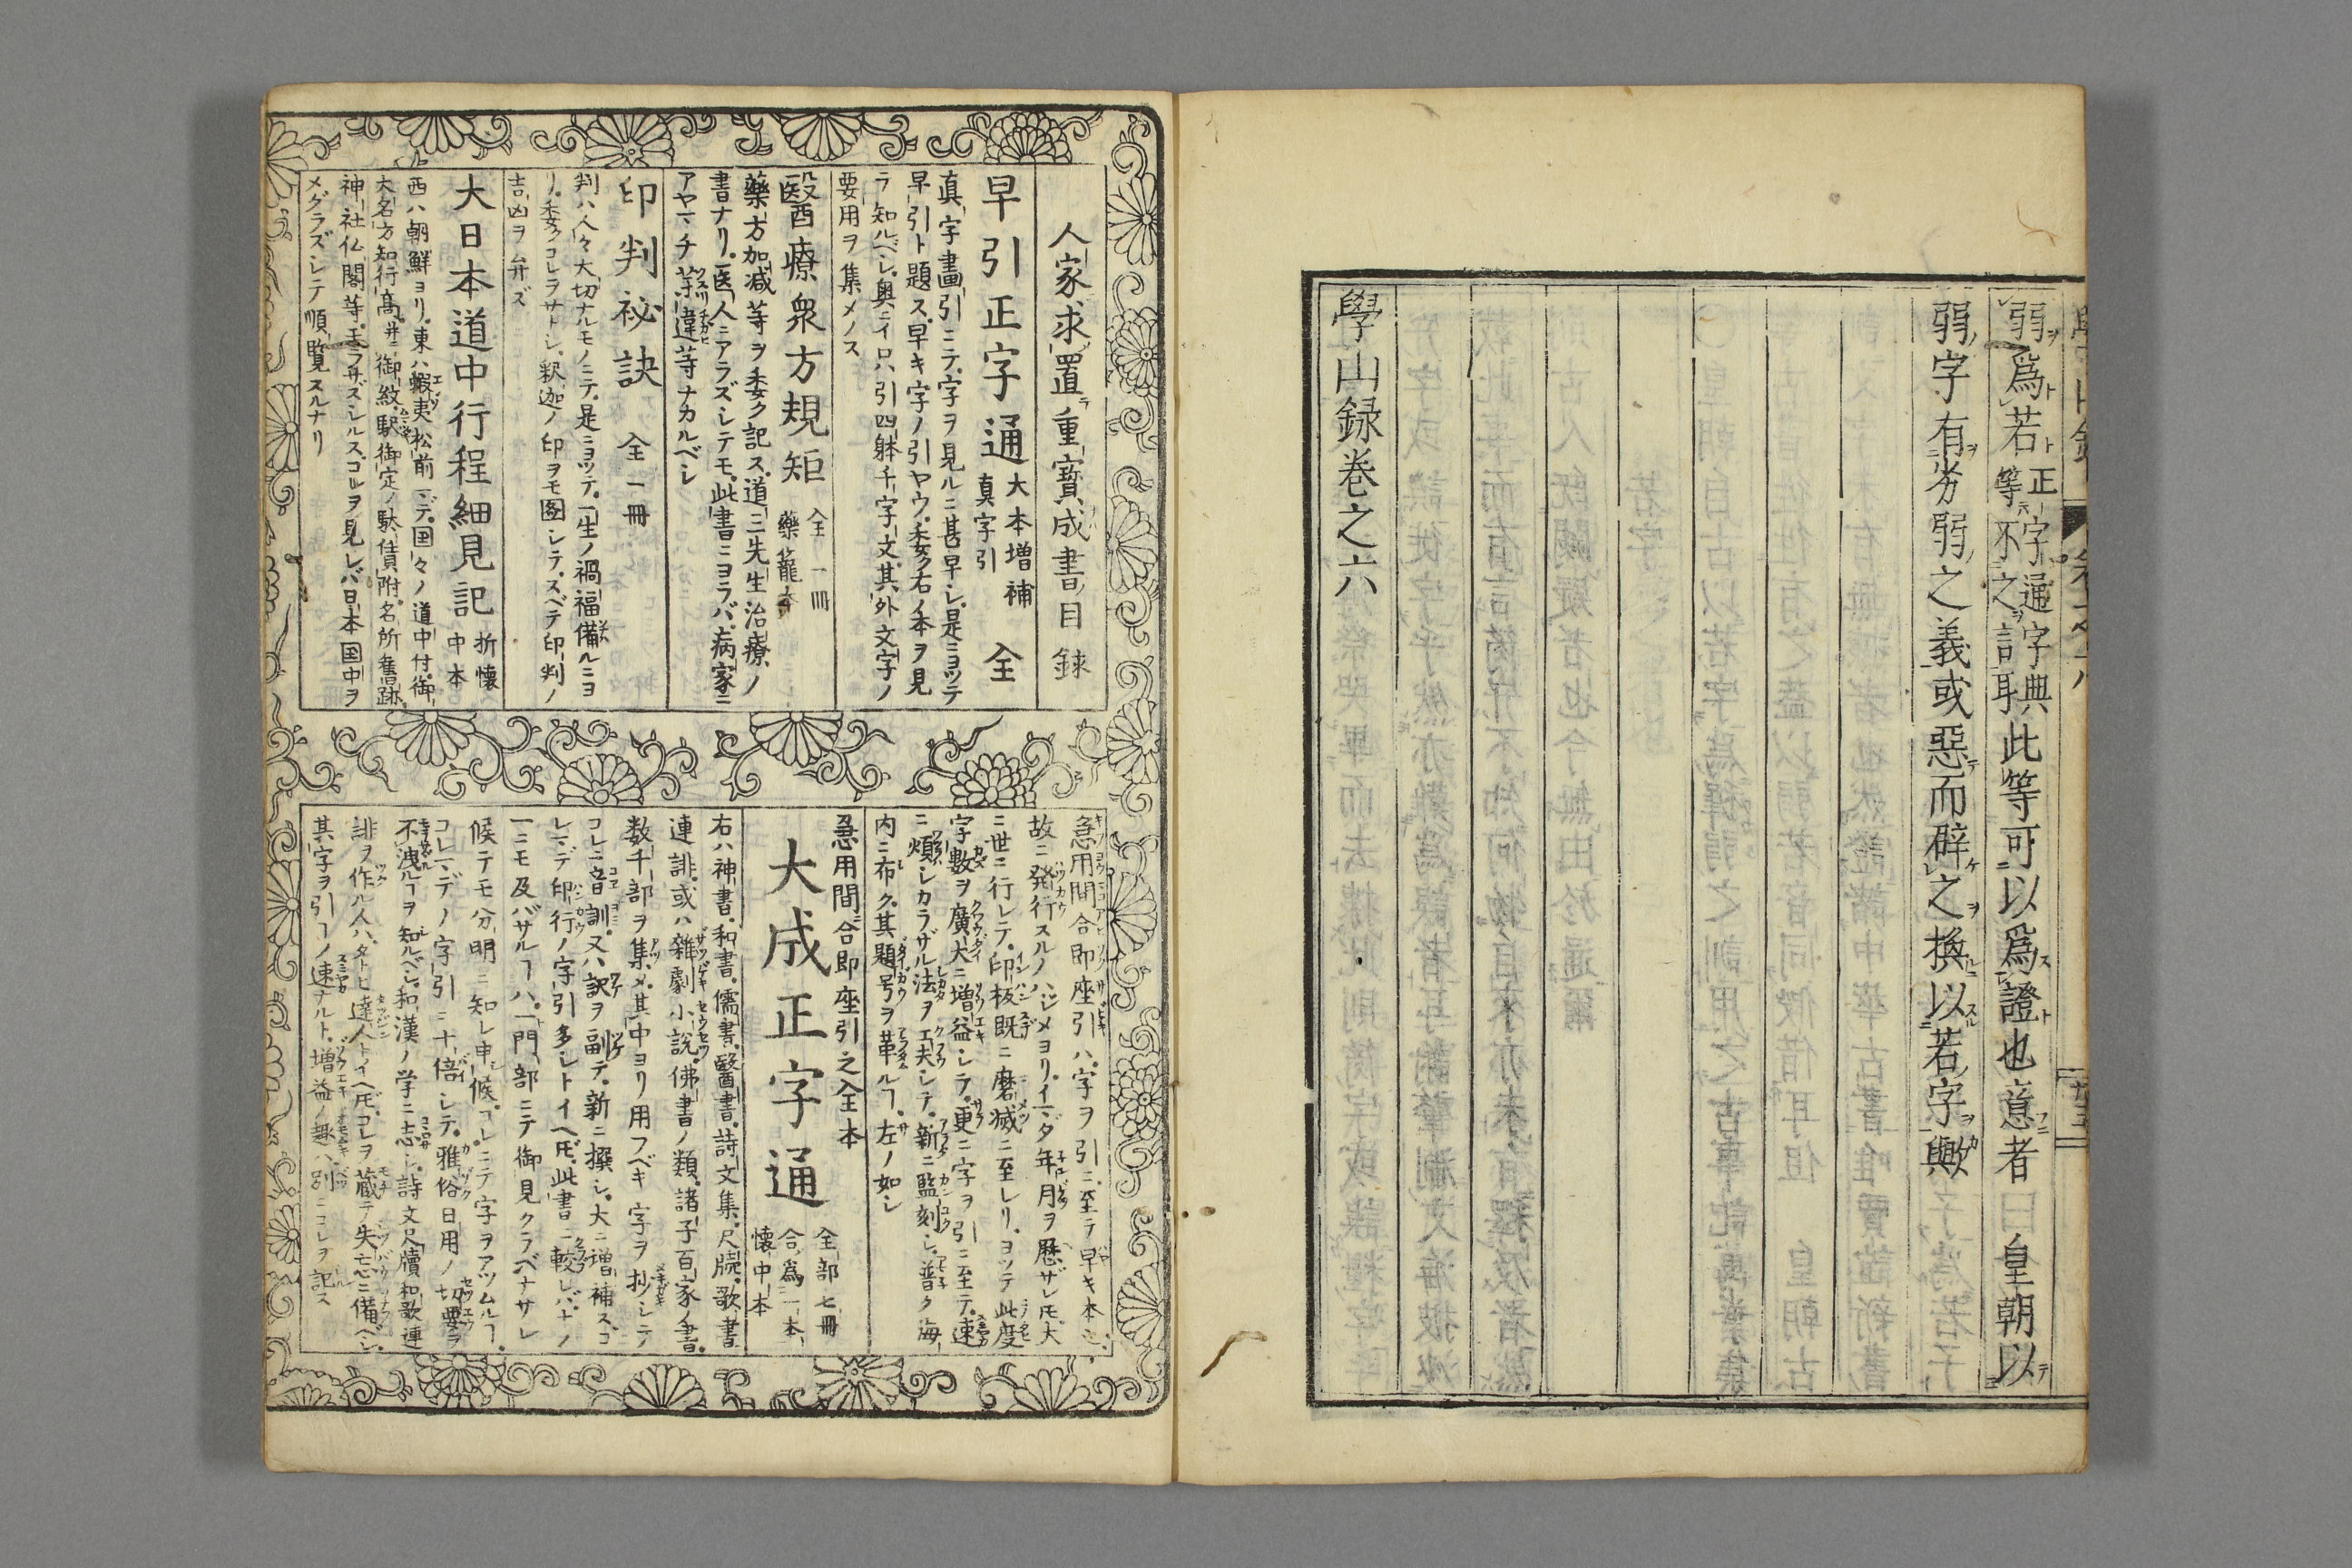 弱爲若正字通字典等不之詞耳此等可以爲證也意者皇朝以
弱字有劣弱之義或惡而辟之換以若字歟
學山録巻之六
人家求置重寶成書目録
早引正字通 大本増補 真字引 全
真字畫引ニテ字ヲ見ルニ甚早シ是ニヨツテ
早引ト題ス早キ字ノ引ヤウ委ク右ノ本ヲ見
ラ知ルベシ奥ニイロハ引四躰千字文其外文字ノ
要用ヲ集メノス
醫療衆方規矩 全一冊 藥籠本
藥方加减等ヲ委ク記ス道三先生治療ノ
書ナリ医人ニアラズシテモ此書ニヨラバ病家ニ
アヤマチ 違等ナカルベシ
印判祕訣 全一冊
判ハ人々大切ナルモノニテ是ニヨツテ一生ノ禍福備ルニヨ
リ委クコレラサトシ釈迦ノ印ヲモ图シテスベテ印判ノ
吉凶ヲ弁ズ
大日本道中行程細見記 折懐中本
西ハ朝鮮ヨリ東ハ蝦夷松前マデ国々ノ道中付御
大名方知行髙井ニ御紋駅御定ノ駄賃附名所舊跡
神社仏閣等 ラサズシルスコレヲ見レバ日本国中ヲ
メグラズシテ順覽スルナリ
急用間合即座引ハ字ヲ引ニ至テ早キ本
故ニ発行スルノハジメヨリイマダ年月ヲ歴ザレ𪜈大
ニ世ニ行レテ印板既ニ磨滅ニ至レリヨツテ此度
字數ヲ廣大ニ増益シテ更ニ字ヲ引ニ至テ速
ニ煩シカラザル法ヲ工夫シテ新ニ監刻シ普ク海
内ニ布ク其題号ヲ革ルヿ左ノ如シ
急用間合即座引之全本
大成正字通 全部七冊 合爲一本 懐中本
右ハ神書和書儒書醫書詩文集尺牘歌書
連誹或ハ雜劇小説佛書ノ類諸子百家ノ書
数千部ヲ集メ其中ヨリ用フベキ字ヲ抄シテ
コレニ音訓又ハ訳ヲ副テ新ニ撰シ大ニ増補スコ
レマデ印行ノ字引多シトイヘ𪜈此書ニ較レバナノ
一ニモ及バザルヿハ一門部ニテ御見クラベナサレ
候テモ分明ニ知レ申候コレニテ字ヲアツムルヿ
コレマデノ字引ニ十倍シテ雅俗日用ノ切要ヲ
不洩ルヿヲ知ルベシ和漢ノ学ニ志シ詩文尺牘和歌連
誹ヲ作ル人ハタトヒ達人トイヘ𪜈コレヲ藏テ失忘ニ備ベシ
其字ヲ引ヿノ速ナルト増益ノ趣ハ別ニコレヲ記ス